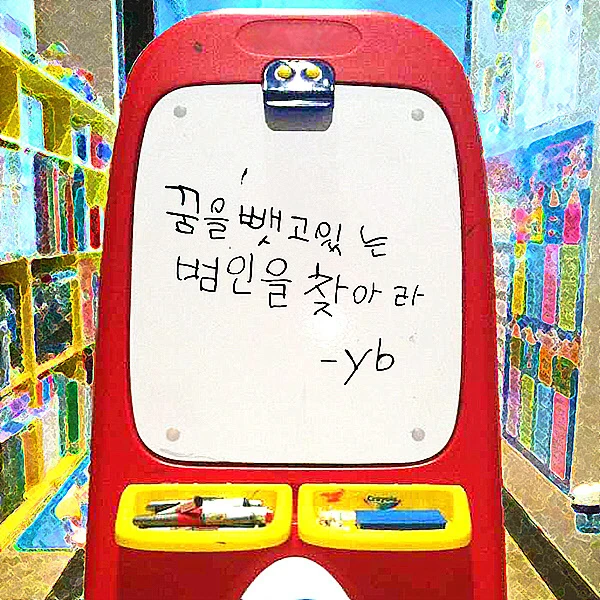 꿈을 뺏고있는
범인을 찾아라
-yb
Crayola